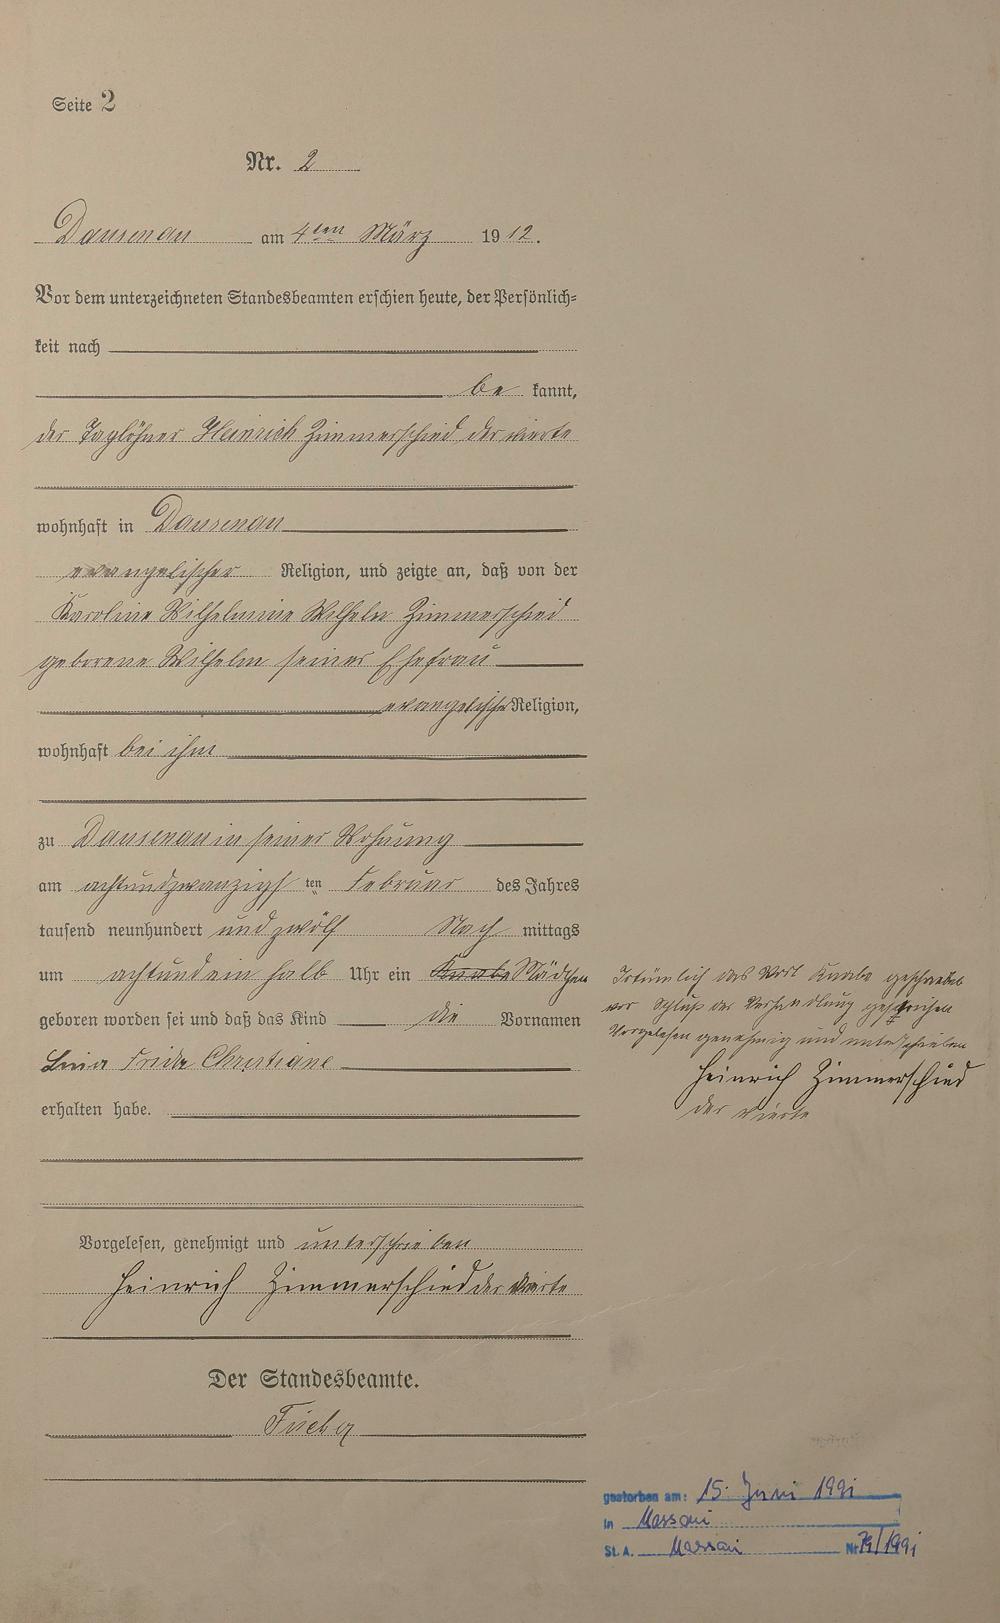 Seite 2
Nr. 2
Dausenau am 4ten März 1912.
Vor dem unterzeichneten Standesbeamten erschien heute, der Persönlich=
keit nach
be kannt,
der Taglöhner Heinrich Zimmerschied der vierte
wohnhaft in Dausenau
evangelischer Religion, und zeigte an, daß von der
Karoline Wilhelmine Wilhelm Zimmerschied
geborene Wilhelm seiner Ehefrau
evangelischer Religion,
wohnhaft bei ihm
zu Dausenau in seiner Wohnung
am achtundzwanzigsten Februar des Jahres
tausend neunhundert und zwölf Nach mittags
um achtundein halb Uhr ein Knabe Mädchen
geboren worden sei und daß das Kind die Vornamen
Frida Christiane
erhalten habe.
Irtümlich das Wort Knabe geschrieben
vor Schluß der Verhandlung gestrichen
Vorgelesen genehmig und unterschrieben
Heinrich Zimmerschied
der vierte
Vorgelesen, genehmigt und unterschrieben
Heinrich Zimmerschied der vierte
Der Standesbeamte.
gestorben am: 15. Juni 1991
in Nassau
St. A. Nassau Nr. 79/1991